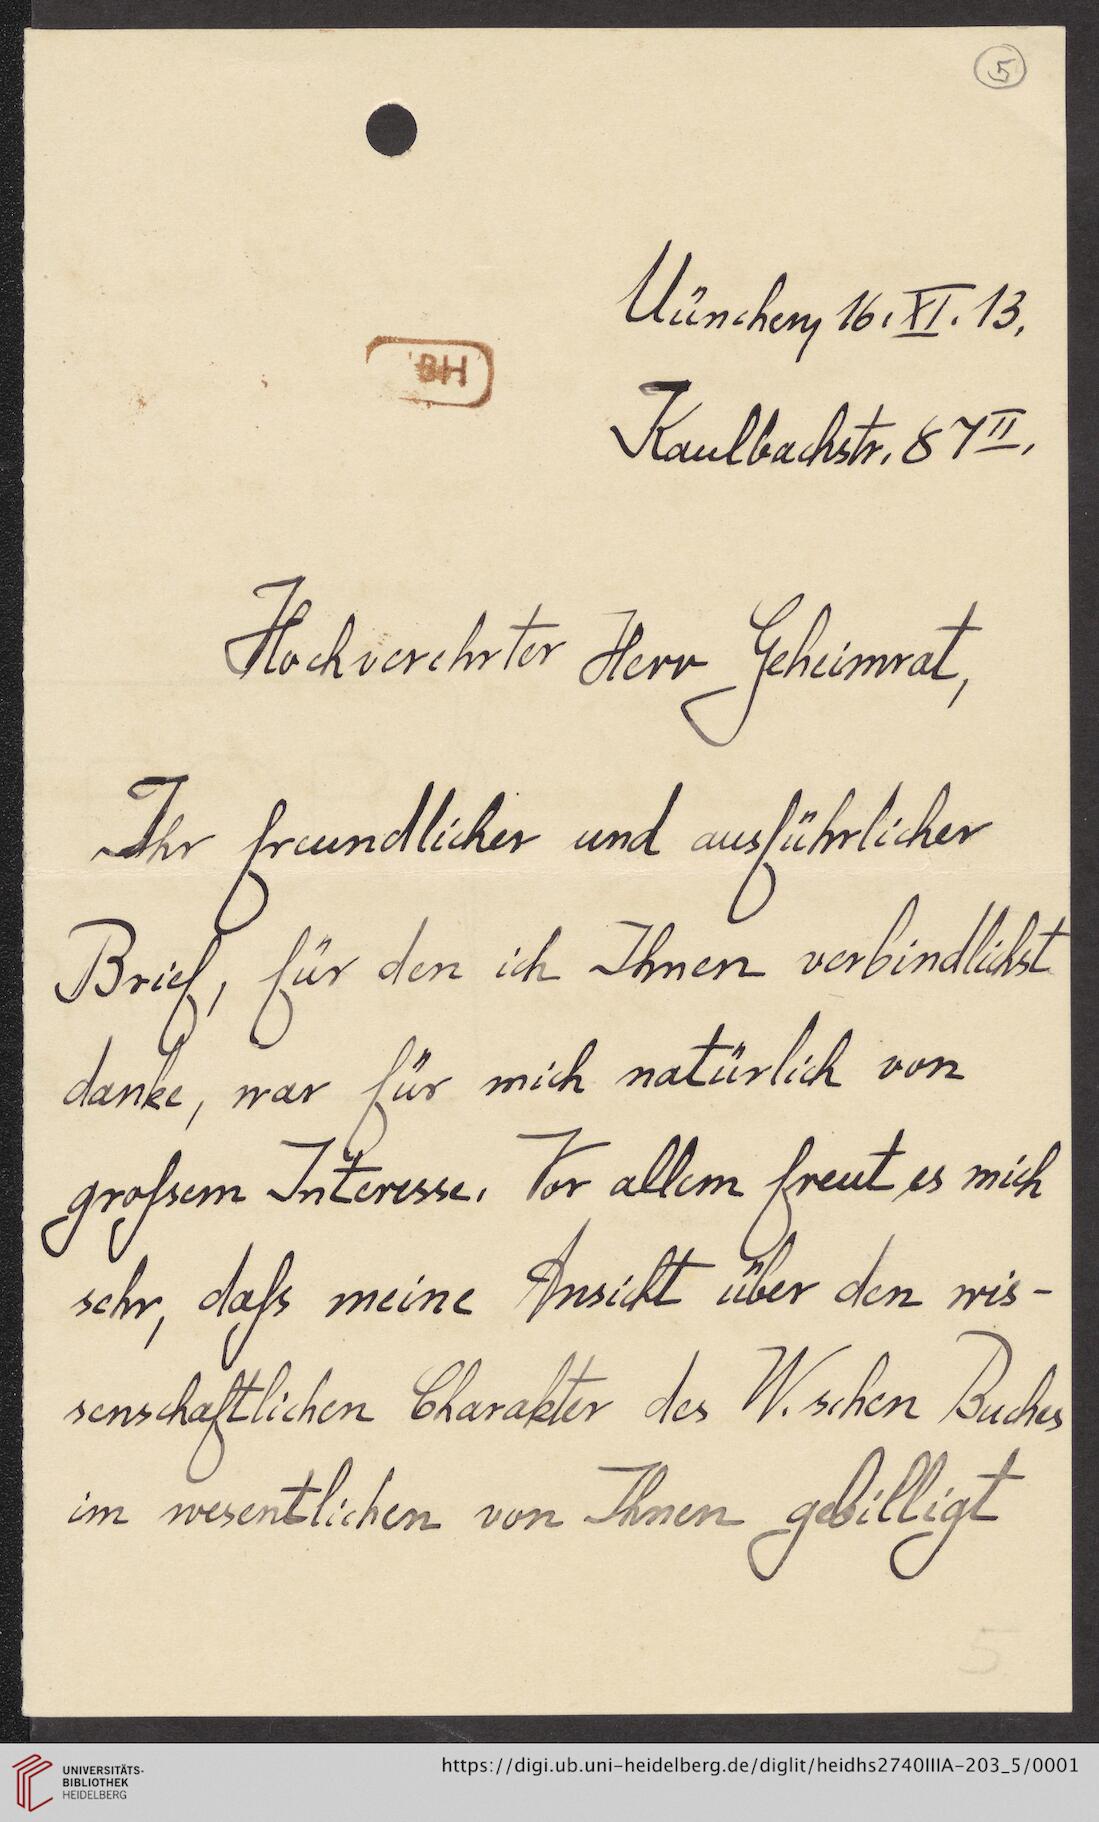 5
München, 16. XI. 13.
HB.
Kaulbachstr. 87 II.
Hochverehrter Herr Geheimrat,
Ihr freundlicher und ausführlicher
Brief, für den ich Ihnen verbindlichst
danke, war für mich natürlich von
großem Interesse. Vor allem freut es mich
sehr, daß meine Ansicht über den wis-
senschaftlichen Charakter des W.schen Buches
im wesentlichen von Ihnen gebilligt
5
UNIVERSITÄTS-
BIBLIOTHEK
HEIDELBERG
https://digi.ub.uni-heidelberg.de/diglit/heidhs2740IIIA-203_5/0001